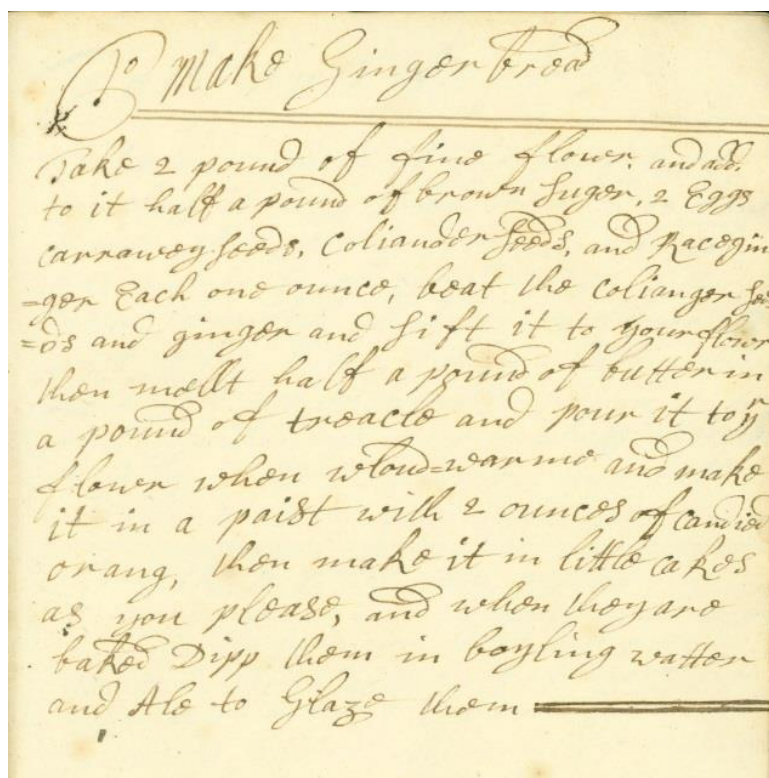 To make Gingerbread
Take 2 pound of fine flower. and add.
to it half a pound of brown suger, 2 Eggs
carrawey seeds, Coliander seeds, and Racegin
=ger Each one ounce, beat the colianger see
=ds and ginger and sift it to your flower
then mellt half a pound of butter in
a pound of treacle and pour it to yr
flower when bloud=warme and make
it in a paist with 2 ounces of candied
orang, then make it in little cakes
as you please, and when they are
baked Dipp them in boyling watter
and Ale to Glaze them